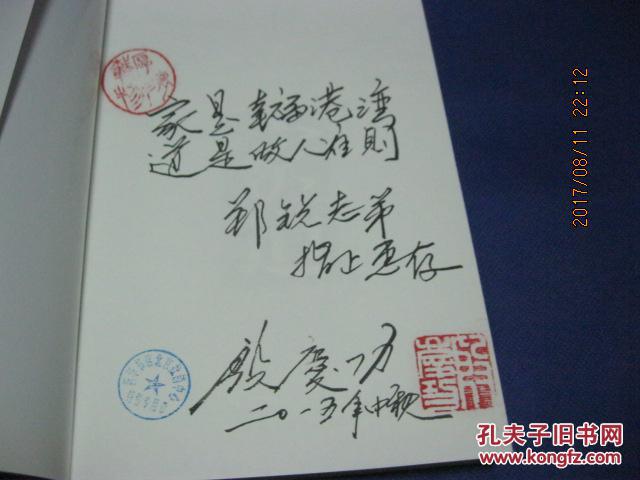 家是幸福港湾
道是做人准则
郑锐志弟
指正惠存
殷庆功
二〇一五年中秋
2017/08/11 22:12
孔夫子旧书网
www.kongfz.com